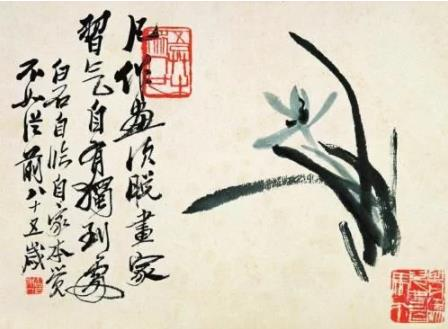 凡作畫須脫畫家
習气自有獨到處
白石自临自家本觉
不如從前八十五歲